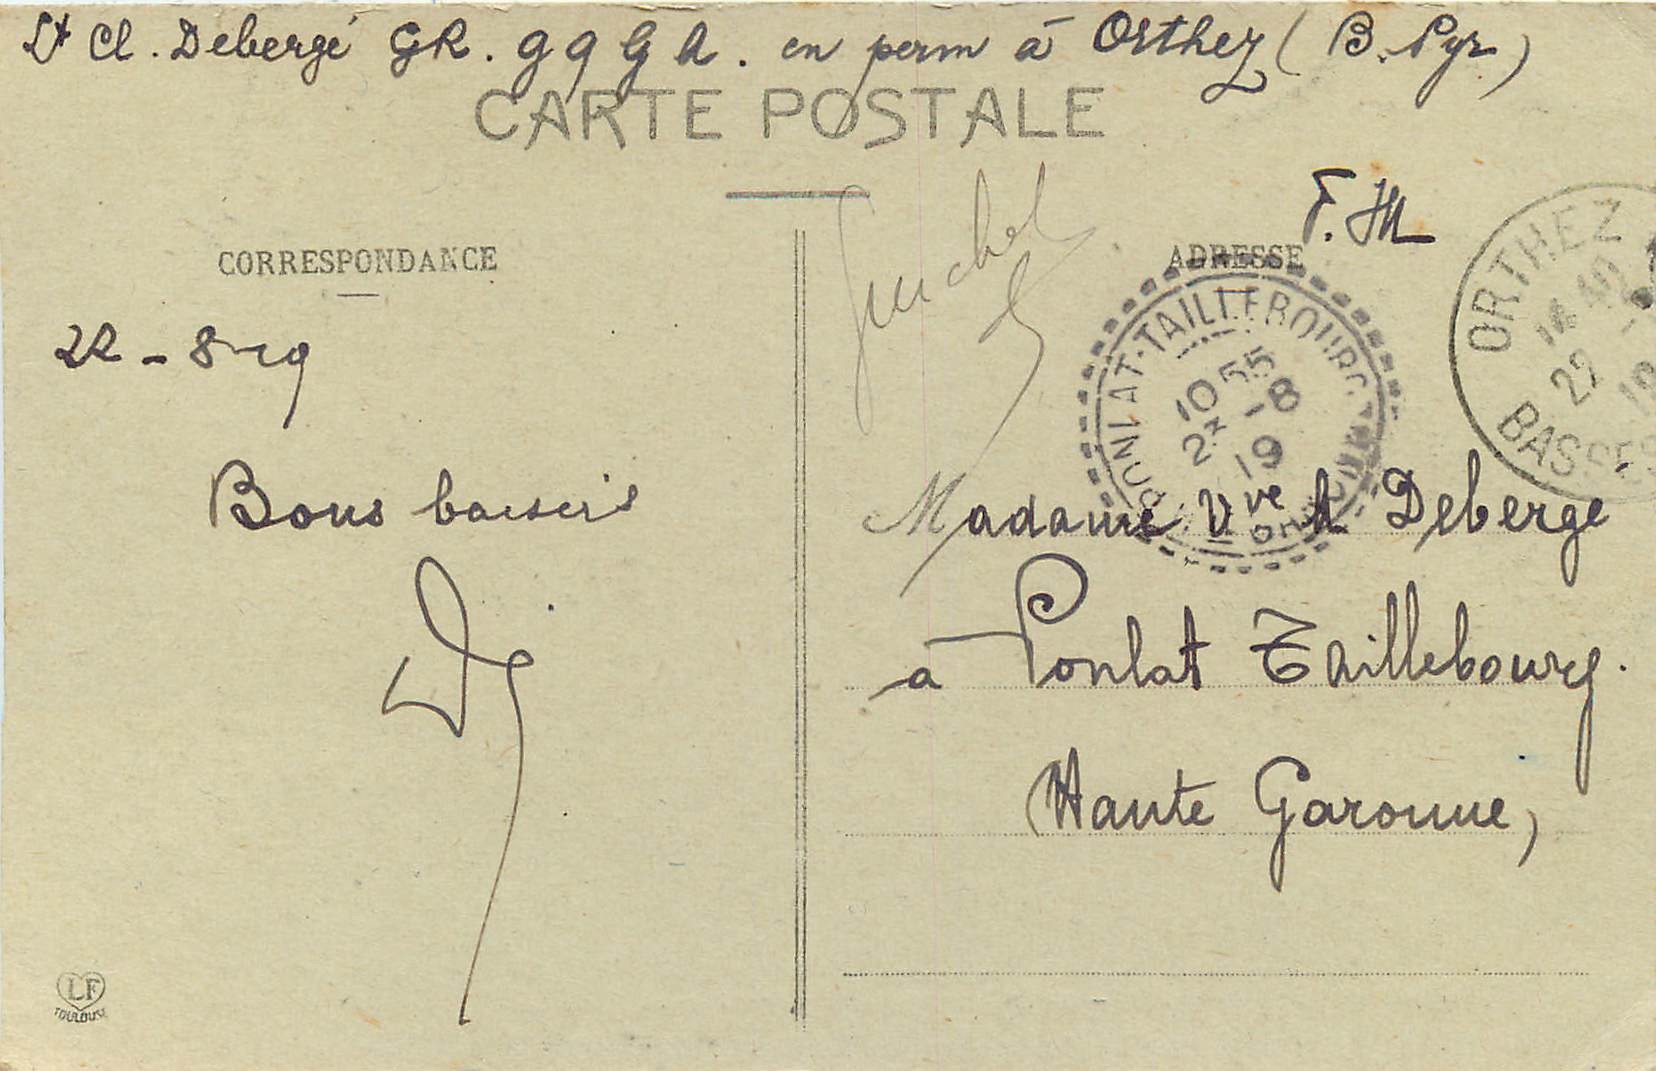 Lt Cl. Debergé GR. g g G A. en perm à Orthez (B. Pyr)
CARTE POSTALE
F.M
CORRESPONDANCE
ADRESSE
ORTHEZ
22
19
BASSES
PONLAT-TAILLEBOURG
10 55
2* -8
19
GARONNE
22-8-19
Bons baisers
Madame Vve A Debergé
à Ponlat Taillebourg.
Haute Garonne,
LF
TOULOUSE